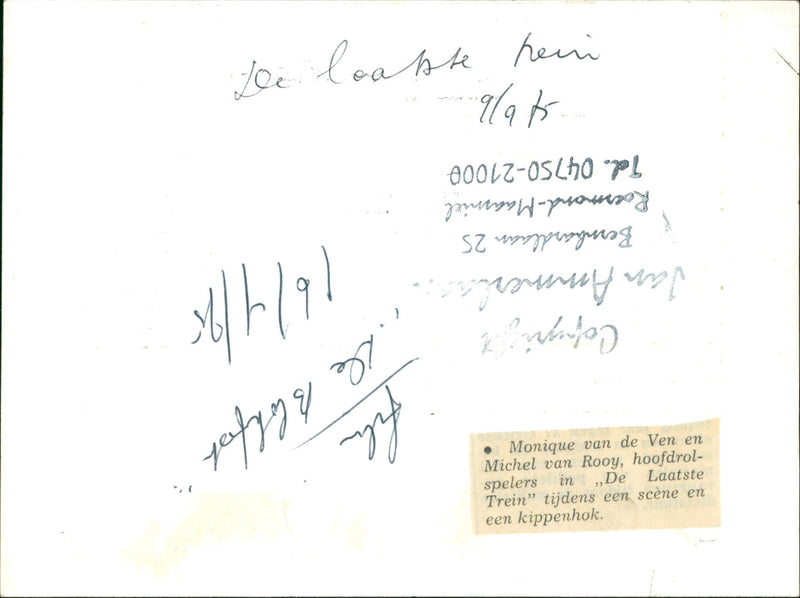 De laatste trein
9/9/75
Copyright
Jan Ammerlaan
Bernhardlaan 25
Roermond-Maasniel
Tel. 04750-21000
film
"De Blokfoot"
• Monique van de Ven en
Michel van Rooy, hoofdrol-
spelers in „De Laatste
Trein” tijdens een scène en
een kippenhok.